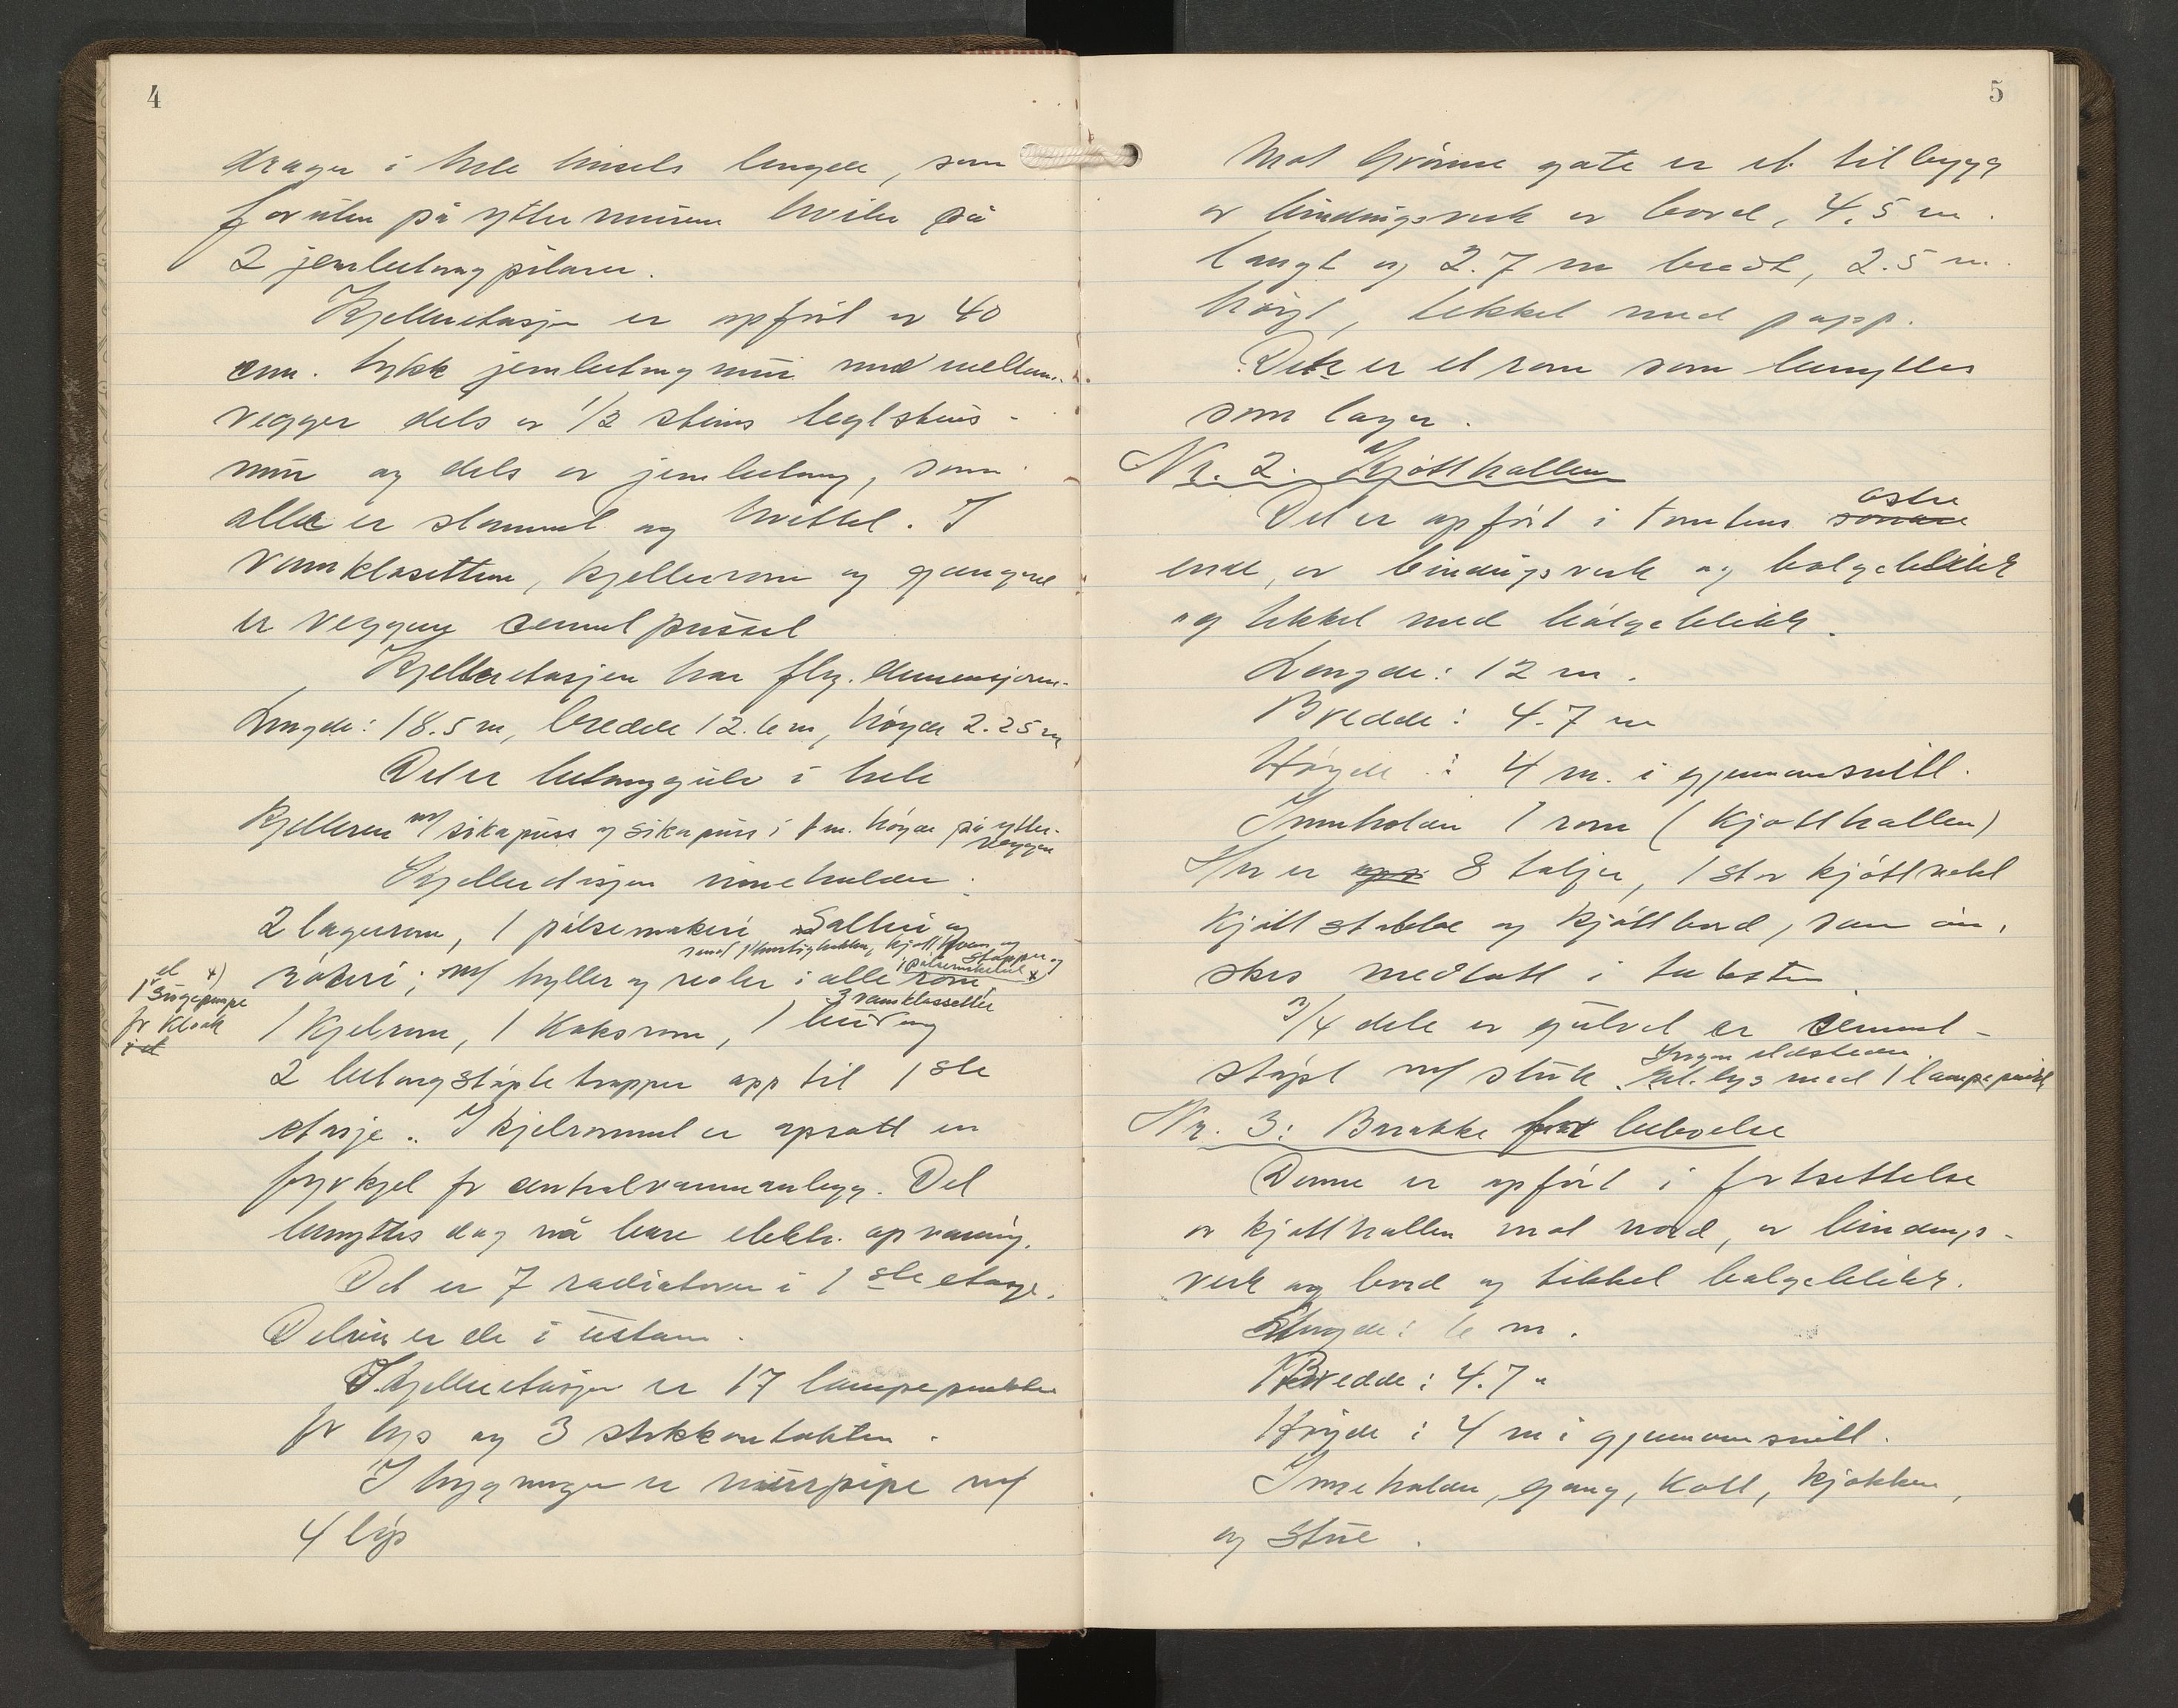 4
drager i hele husets lengde, som
foruten på yttermurene hviler på
2 jernbetongpilarer.
Kjelleretasjen er opført av 40
cm. tykk jernbetongmur med mellem-
vegger dels av 1/2 steins teglsteins-
mur og dels av jernbetong, som
alle er slemmet og hvittet. I
vannklosettene, kjellerrom og gangene
er veggene cementpusset
Kjelleretasjen har flg. dimensjoner.
Lengde: 18.5 m, bredde 12.6 m, høyde 2.25 m
Det er betonggulv i hele
kjelleren m/ sikapuss og sikapuss i 1 m. høyde på ytter-
veggene
Kjelleretasjen inneholder:
2 lagerrom, 1 pølsemakeri Salteri og
med 1 hurtighakker, kjøttkvern og
stopper og
røkeri; m/ hyller og reoler i alle rom
i pølsemakeriet x
el x)
1 sugepumpe
for kloak
i et
3 vannklossetter
1 Kjelrom, 1 Koksrom, 1
2 betongstøpte trapper opp til 1ste
etasje. I kjelrommet er opsatt en
fyrkjel for centralvarmeanlegg. Det
benyttes dog nå bare elektr. opvarming.
Det er 7 radiatorer i 1ste etasje.
Delvis er de i ustand.
I kjelleretasjen er 17 lampepunkter
for lys og 3 stikkontakter.
I bygningen er murpipe m/
4 løp
5
Mot Grönne gate er et tilbygg
av bindingsverk av bord, 4.5 m.
langt og 2.7 m bredt, 2.5 m.
høyt, tekket med papp.
Dette er et rom som benyttes
som lager.
Nr. 2. Kjøtthallen
østre
Det er opført i tomtens søndre
ende, av bindingsverk og bølgeblikk
og tekket med bølgeblikk.
Lengde: 12 m.
Bredde: 4.7 m
Høyde: 4 m. i gjennomsnitt.
Innholder 1 rom (Kjøtthallen)
Her er 8 taljer, 1 stor kjøttvekt
kjøttstabbe og kjøttbord, som øn-
skes medtatt i taksten.
3/4 dele av gulvet er cement-
Ingen ildsteder.
støpt m/ sluk. El. lys med 1 lampepunkt
Nr. 3: Barakke for beboelse
Denne er opført i fortsettelse
av kjøtthallen mot nord, av bindings-
verk og bord og tekket bølgeblikk.
Lengde: 6 m.
Bredde: 4.7 "
Høyde: 4 m i gjennomsnitt.
Inneholder, gang, Kott, kjøkken,
og stue.